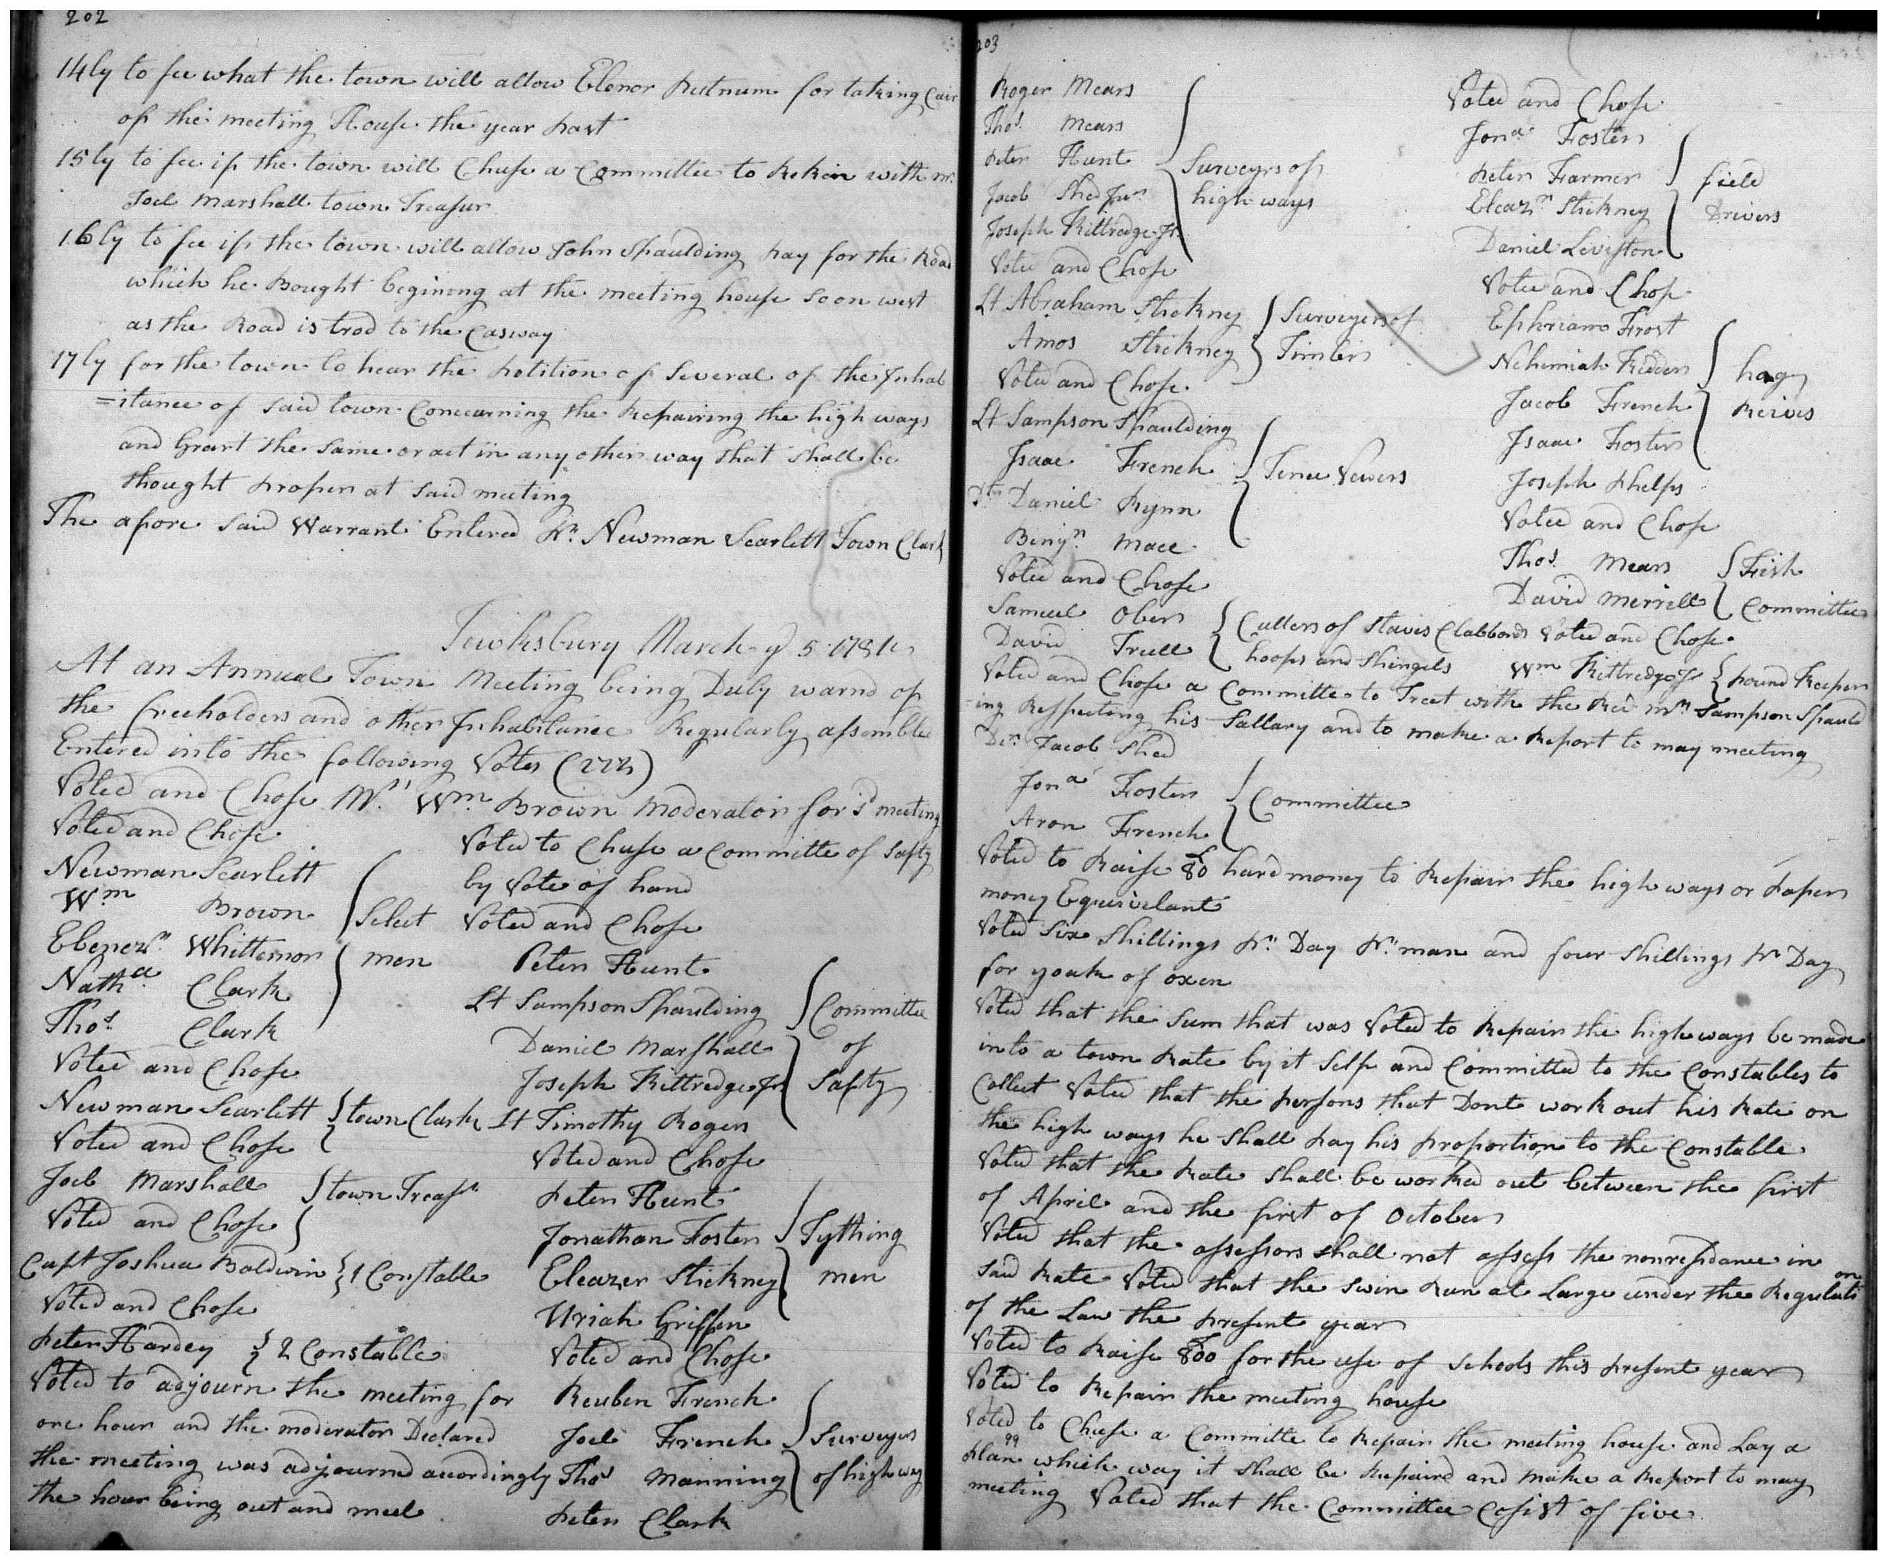 202
14ly to see what the town will allow Elenor Putnum for taking Cair
of the meeting House the year past
15ly to see if the town will Chuse a Committee to Rekin with mr
Joel Marshall town Treasur
16ly to see if the town will allow John Spaulding pay for the Road
which he Bought begining at the meeting house soon west
as the Road is trod to the Casway
17ly for the town to hear the petition of Several of the Inhab
=itance of said town Concarning the Repairing the high ways
and Grant the Same or act in any other way that shall be
thought proper at said meeting
The afore said Warrant Entered Pr Newman Scarlett Town Clark
Tewksbury March ye 5 1781
At an Annual Town Meeting being Duly warnd of
the freeholders and other Inhabitance Regularly assembled
Entered into the following Votes (viz)
Voted and Chose Mr Wm Brown moderator for sd meeting
Voted and Chose
Newman Scarlett
Wm Brown
Ebenezr Whittemor
Nathll Clark
Thos Clark
Select
men
Voted and Chose
Newman Scarlett } town Clark
Voted and Chose
Joel Marshall } town Treasr
Voted and Chose
Capt Joshua Baldwin } 1 Constable
Voted and Chose
Peter Hardey } 2 Constable
Voted to adjourn the meeting for
one hour and the moderator Declared
the meeting was adjournd accordingly
the hour being out and meet
Voted to Chuse a Committe of Safty
by Vote of hand
Voted and Chose
Peter Hunt
Lt Sampson Spaulding
Daniel Marshall
Joseph Kittredge Jr
Lt Timothy Rogers
Committee
of
Safty
Voted and Chose
Peter Hunt
Jonathan Foster
Eleazer Stickney
Uriah Griffen
Tything
men
Voted and Chose
Reuben French
Joel French
Thos Manning
Peter Clark
Surveyrs
of high way
203
Roger Mears
Thos Mears
Peter Hunt
Jacob Shed Jur
Joseph Kittredge Jr
Surveyrs of
high ways
Voted and Chose
Lt Abraham Stickney
Amos Stickney
Surveyers of
Timber
Voted and Chose
Lt Sampson Spaulding
Isaac French
Daniel Pynn
Benjn Mace
Fence Vewers
Voted and Chose
Samuel Ober
David Trull
Cullers of Staves Clabbords
hoops and Shingels
Voted and Chose
Jona Foster
Peter Farmer
Eleazr Stickney
Daniel Leviston
field
Drivers
Voted and Chose
Ephriam Frost
Nehemiah Kidder
Jacob French
Isaac Foster
Joseph Phelps
hog
Reives
Voted and Chose
Thos Mears
David Merrill
Fish
Committee
Voted and Chose
Wm Kittredge Jr } pound Keeper
Voted and Chose a Committe to Treet with the Rev mr Sampson Spauld
ing Respecting his Sallary and to make a Report to may meeting
Dn Jacob Shed
Jona Foster
Aron French
Committee
Voted to Raise £80 hard money to Repair the high ways or paper
money Equivelant
Voted Six Shillings Pr Day Pr man and four Shillings Pr Day
for yoak of oxen
Voted that the Sum that was Voted to Repair the high ways be made
into a town Rate by it Self and Committed to the Constables to
Collect Voted that the persons that Dont work out his Rate on
the high ways he Shall pay his proportion to the Constable
Voted that the Rate Shall be worked out between the first
of April and the first of October
Voted that the assessors shall not assess the nonresidance in
said Rate Voted that the Swin Run at Large under the Regulati
on
of the Law the present year
Voted to Raise £800 for the use of Schools this present year
Voted to Repair the meeting house
Voted to Chuse a Committe to Repair the meeting house and Lay a
plan which way it shall be Repaird and make a Report to may
meeting Voted that the Committee Cosist of five